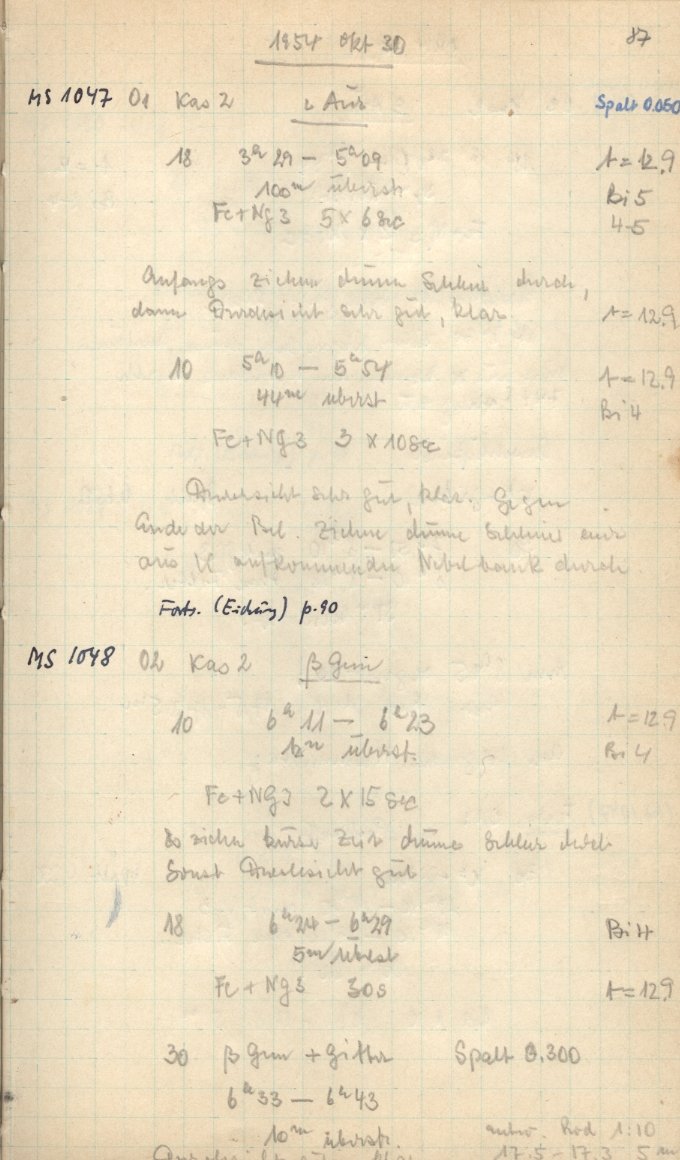 1954 Okt 30
87
MS 1047 01 Kas 2 ι Aur Spalt 0.050
18 3h 29 — 5h 09 t = 12.9
100m überst. Bi 5
Fe+Ng 3 5 x 6 sec 4-5
Anfangs ziehen dünne Schleier durch,
dann Durchsicht sehr gut, klar. t = 12.9
10 5h 10 — 5h 54 t = 12.9
44m überst Bi 4
Fe+Ng 3 3 x 10 sec
Durchsicht sehr gut, klar. Gegen
Ende der Bel. ziehen dünne Schleier
aus aufkommenden Nebelbank durch.
Forts. (Eichung) p. 90
MS 1048 02 Kas 2 β Gem
10 6h 11 — 6h 23 t = 12.9
12m überst. Bi 4
Fe+Ng 3 2 x 15 sec
Es ziehen kurze Zeit dünne Schleier durch
Sonst Durchsicht gut
18 6h 24 — 6h 29 Bi 4
5m überst
Fe + Ng 3 30s t = 12.9
30 β Gem + Gitter Spalt 0.300
6h 33 — 6h 43
10m überst. 1:10
17.5 - 17.3 5m